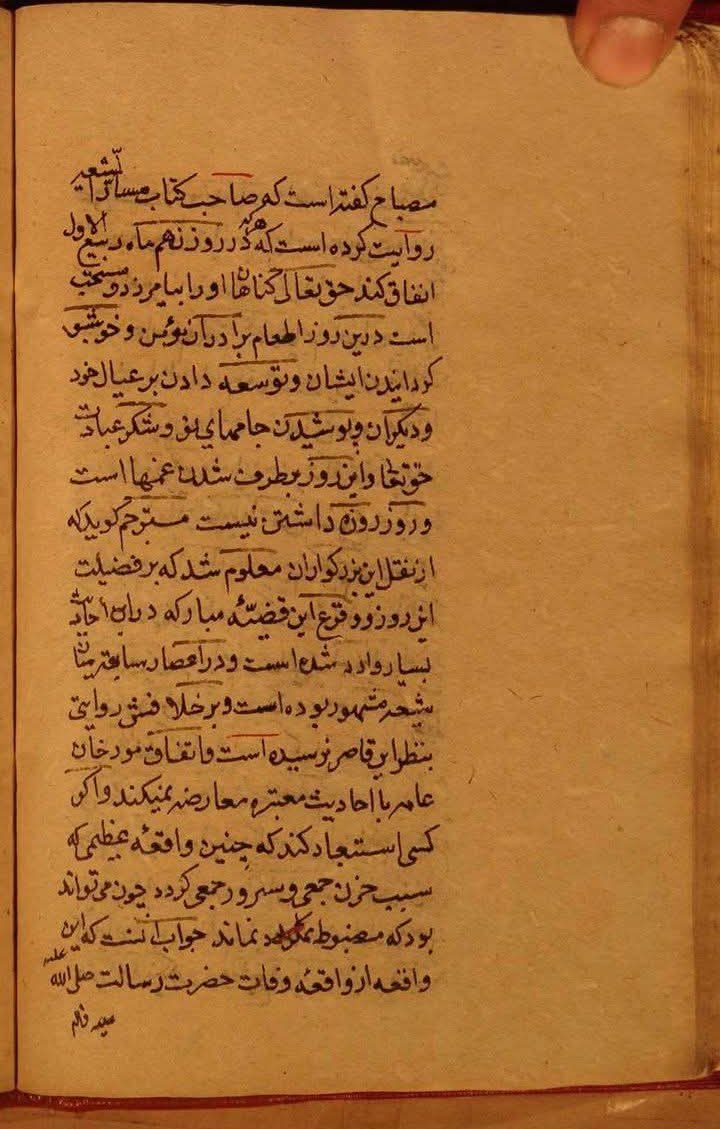 مصباح کفته است که صاحب کتاب مسار الشیعه
روایت کرده است که هرکه در روز نهم ماه ربیع الاول
انفاق کند حق تعالی کناهان او را بیامرزد و مستحب
است درین روز اطعام برادران مؤمن و خوشبو
کردانیدن ایشان و توسعه دادن بر عیال خود
و دیکران و پوشیدن جامهای نو و شکر و عبادت
حقتعالی و این روز برطرف شدن غمها است
و روز روزه داشتن نیست مترجم کوید که
از نقل این بزرکواران معلوم شد که بر فضیلت
این روز و وقوع این قضیّه مبارکه در این احادیث
بسیار وارد شده است و در اعصار سابقه میان
شیعه مشهور بوده است و بر خلافش روایتی
بنظر این قاصر نرسیده است و اتفاق مورخان
عامه با احادیث معتبره معارضه نمیکند و اکر
کسی استبعاد کند که چنین واقعهٔ عظیمی که
سبب حزن جمعی و سرور جمعی کردد چون می تواند
بود که مضبوط نماند جواب آنست که این
واقعه از واقعهٔ وفات حضرت رسالت صلی الله علیه